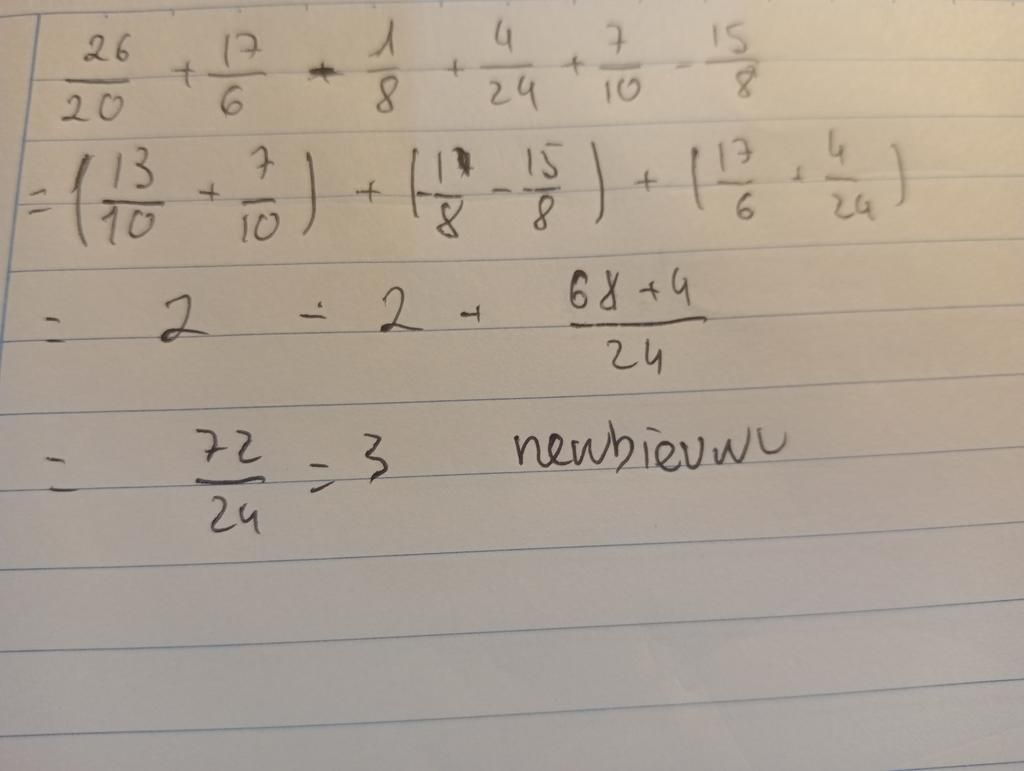 26/20 + 17/6 - 1/8 + 4/24 + 7/10 - 15/8
= (13/10 + 7/10) + (-1/8 - 15/8) + (17/6 + 4/24)
= 2 - 2 + 68+4/24
= 72/24 = 3 newbieuwu